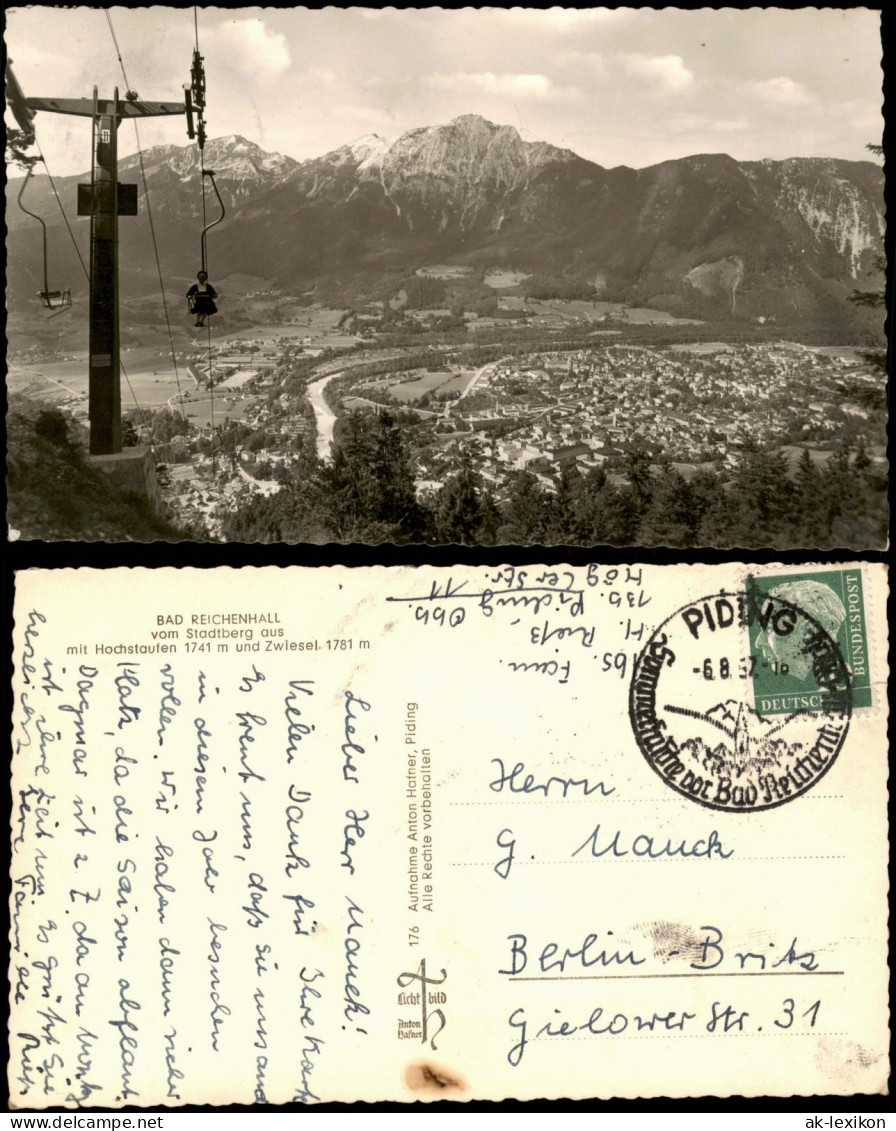 BAD REICHENHALL
vom Stadtberg aus
mit Hochstaufen 1741 m und Zwiesel 1781 m
Lieber Herr Mauck!
Vielen Dank für Ihre Karte
Es freut uns, daß sie uns auch
in diesem Jahr besuchen
wollen. Wir haben dann wieder
Platz, da die Saison abflaut.
Dagmar ist z. Z. da am
ist ihre Zeit um. Es grüßt Sie
herzlichst Ihre Familie Rieß
176 Aufnahme Anton Hafner, Piding
Alle Rechte vorbehalten
Lichtbild
Anton
Hafner
Abs. Fam.
H. Rieß,
13b. Piding Obb.
Högler Str. 11
PIDING
-6.8.57.-16
Sommerfrische vor Bad Reichenhall
DEUTSCHE
BUNDESPOST
Herrn
G. Mauck
Berlin-Britz
Gielower Str. 31
ak-lexikon